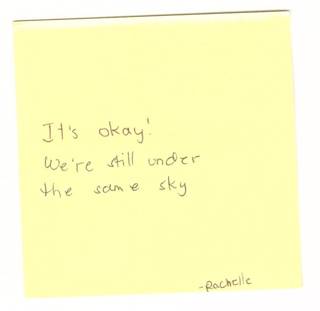 It's okay!
We're still under
the same sky
-Rachelle